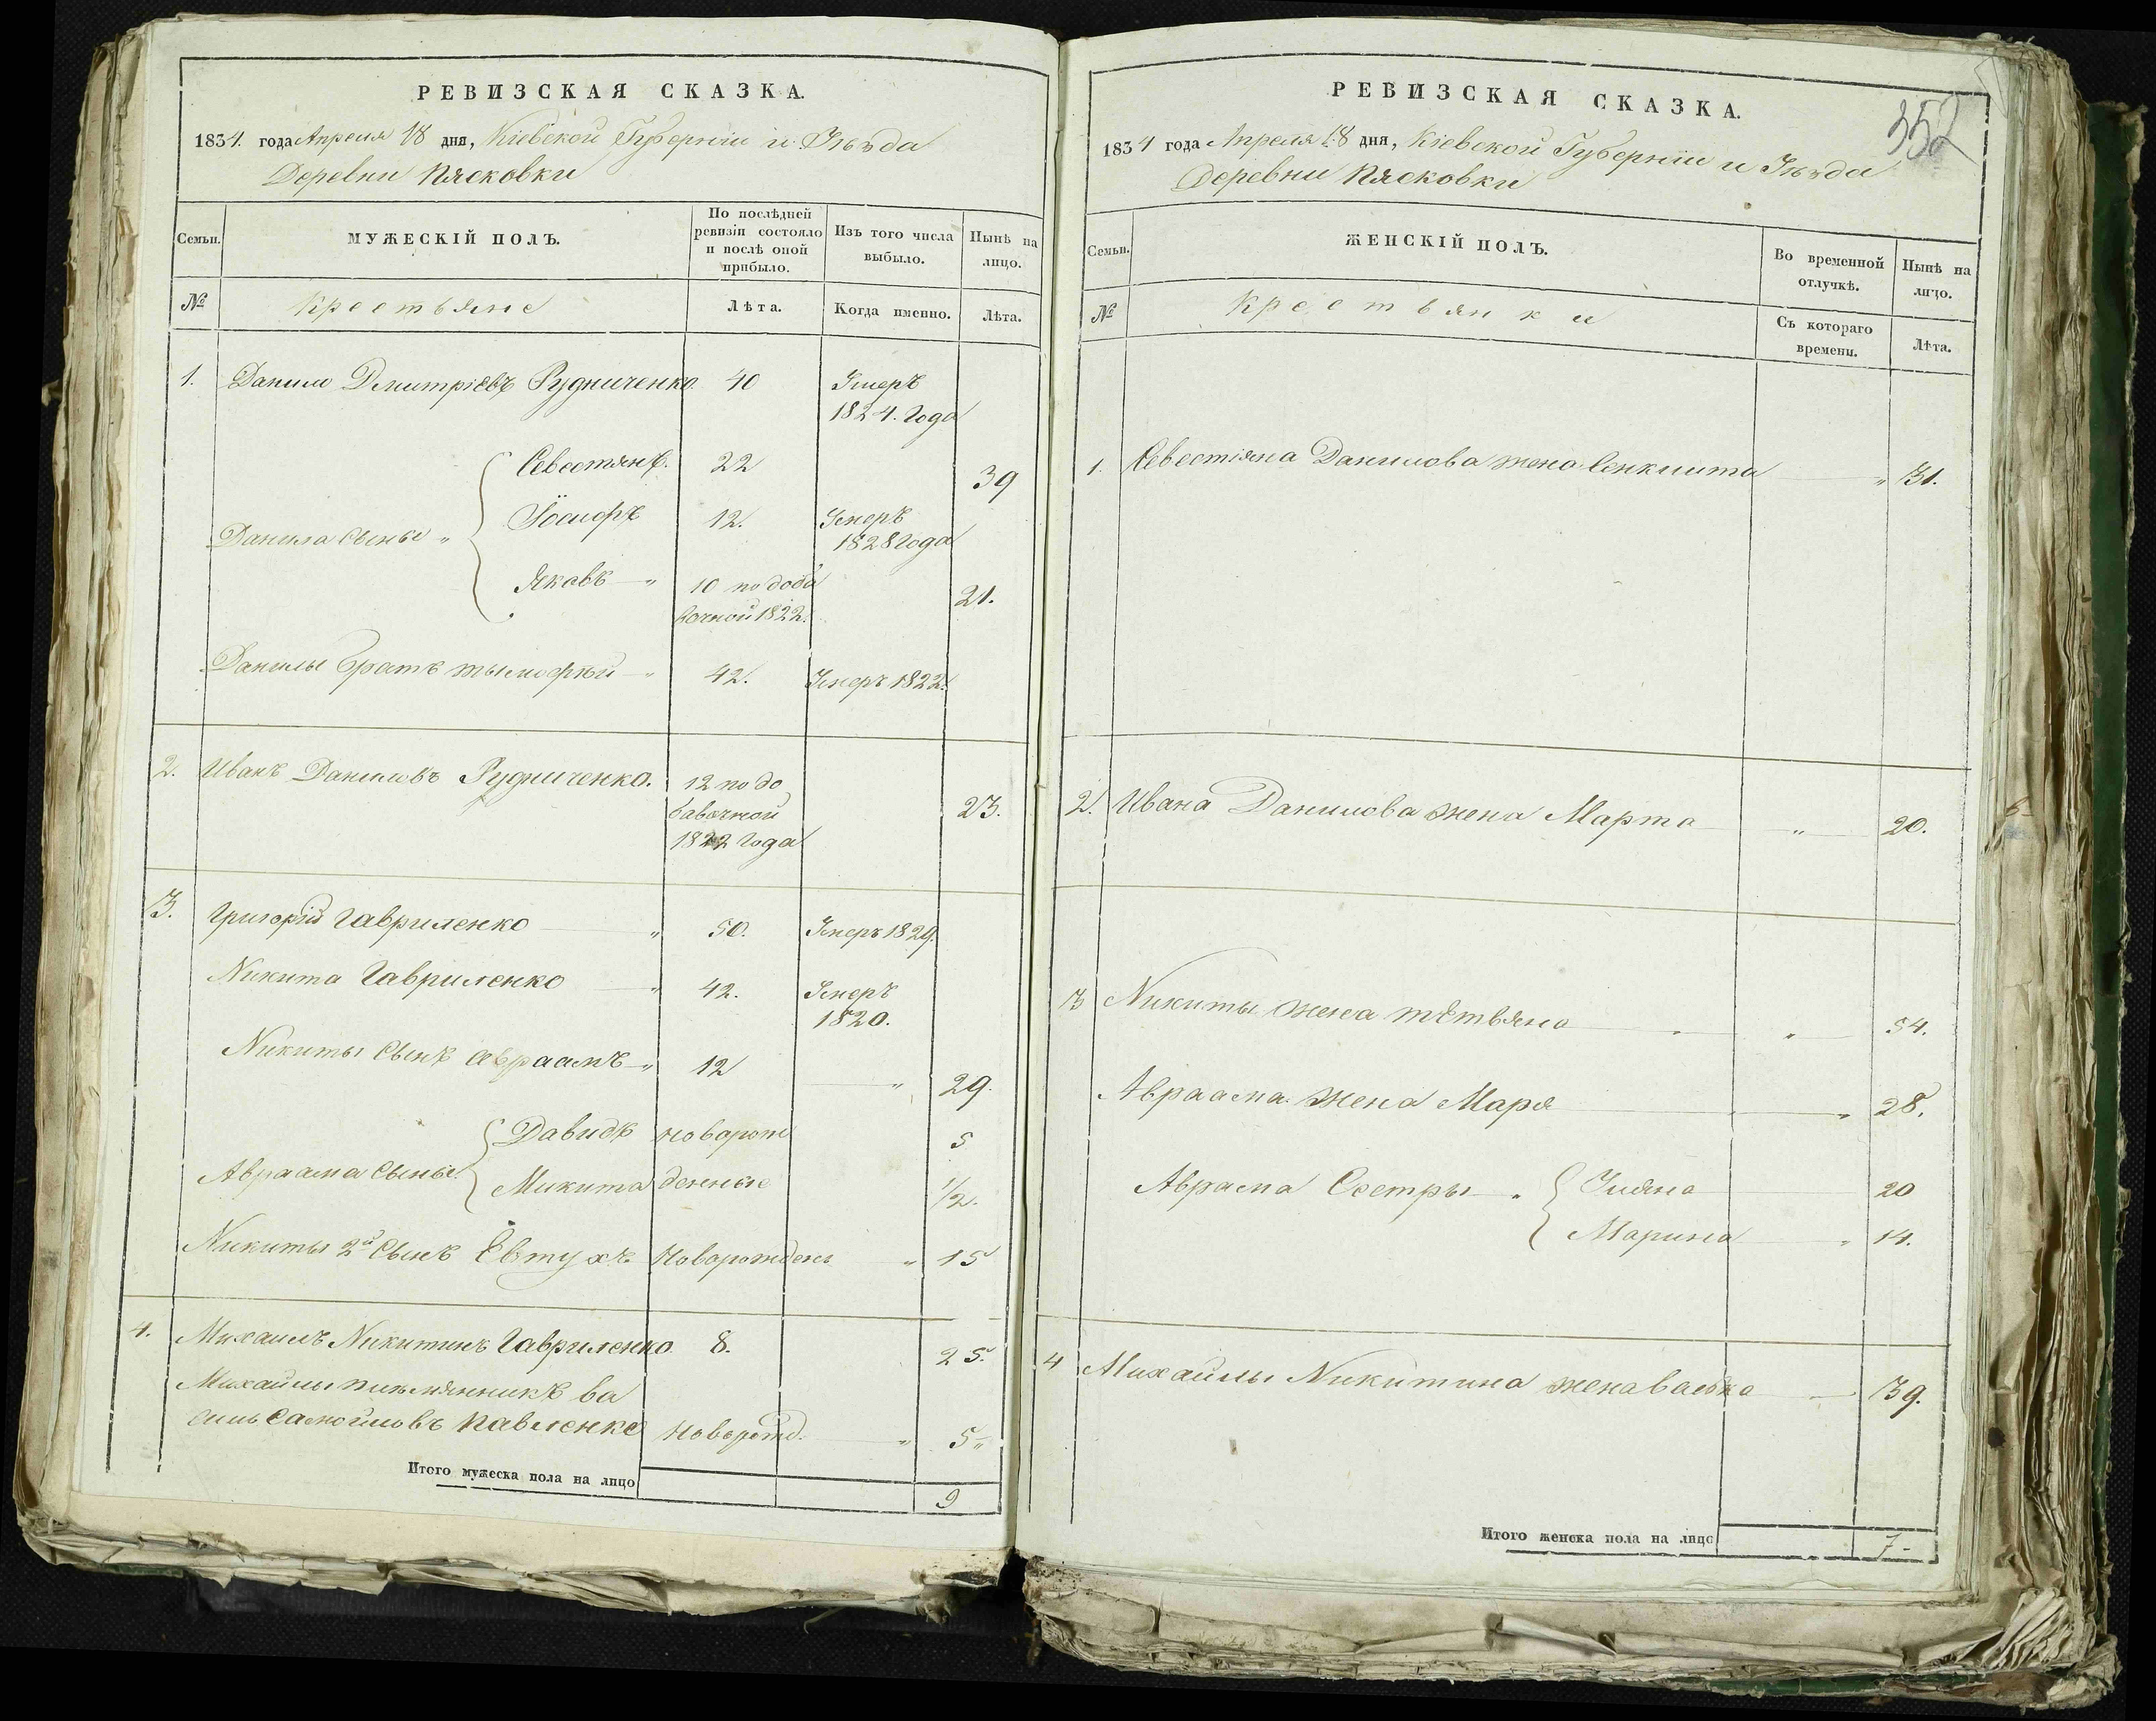 РЕВИЗСКАЯ СКАЗКА.
1834. года Апреля 18 дня, Кіевской Губерніи и Уѣзда
Деревни Пясковки
Семьи.
МУЖЕСКІЙ ПОЛЪ.
По послѣдней ревизіи состояло и послѣ оной прибыло.
Изъ того числа выбыло.
Нынѣ на лицо.
№
Крестьяне
Лѣта.
Когда именно.
Лѣта.
1. Данило Дмитріевъ Рудниченко 40 Умеръ
1824. Года
Севестянъ. 22 39
Іосифъ 12. Умеръ
Данила Сыны „ 1828 Года
Яковъ „ 10 по доба
вочной 1822. 21.
Данилы братъ тымофѣй „ 42. Умеръ 1822.
2. Иванъ Даниловъ Рудниченко. 12 по до
бавочной 23.
1822 Года
3. Григорій Гавриленко „ 50. Умеръ 1829.
Никита Гавриленко „ 42. Умеръ
1820.
Никиты Сынъ авраамъ „ 12 „ 29.
Давидъ новорож 5
Авраама Сыны Микита денные 1/2.
Никиты 2й Сынъ Евтухъ Новорожденъ „ 15
4. Михаилъ Никитинъ Гавриленко 8. 25.
Михайлы племянникъ ва
силь Самойловъ Павленко Новорожд. „ 5„
Итого мужеска пола на лицо 9
352
РЕВИЗСКАЯ СКАЗКА.
1834 года Апреля 18 дня, Кіевской Губерніи и Уѣзда
Деревни Пясковки
Семьи.
ЖЕНСКІЙ ПОЛЪ.
Во временной отлучкѣ.
Нынѣ на лицо.
№
Крестьянки
Съ котораго времени.
Лѣта.
1. Севестіяна Данилова жена „ 31.
2. Ивана Данилова жена Марта „ 20.
3 Никиты жена тетьяна „ „ 54.
Авраама жена Маря „ 28.
Аврама Сестры „ Уляна 20
Марина „ 14.
4 Михайлы Никитина жена 39.
Итого женска пола на лицо 7-